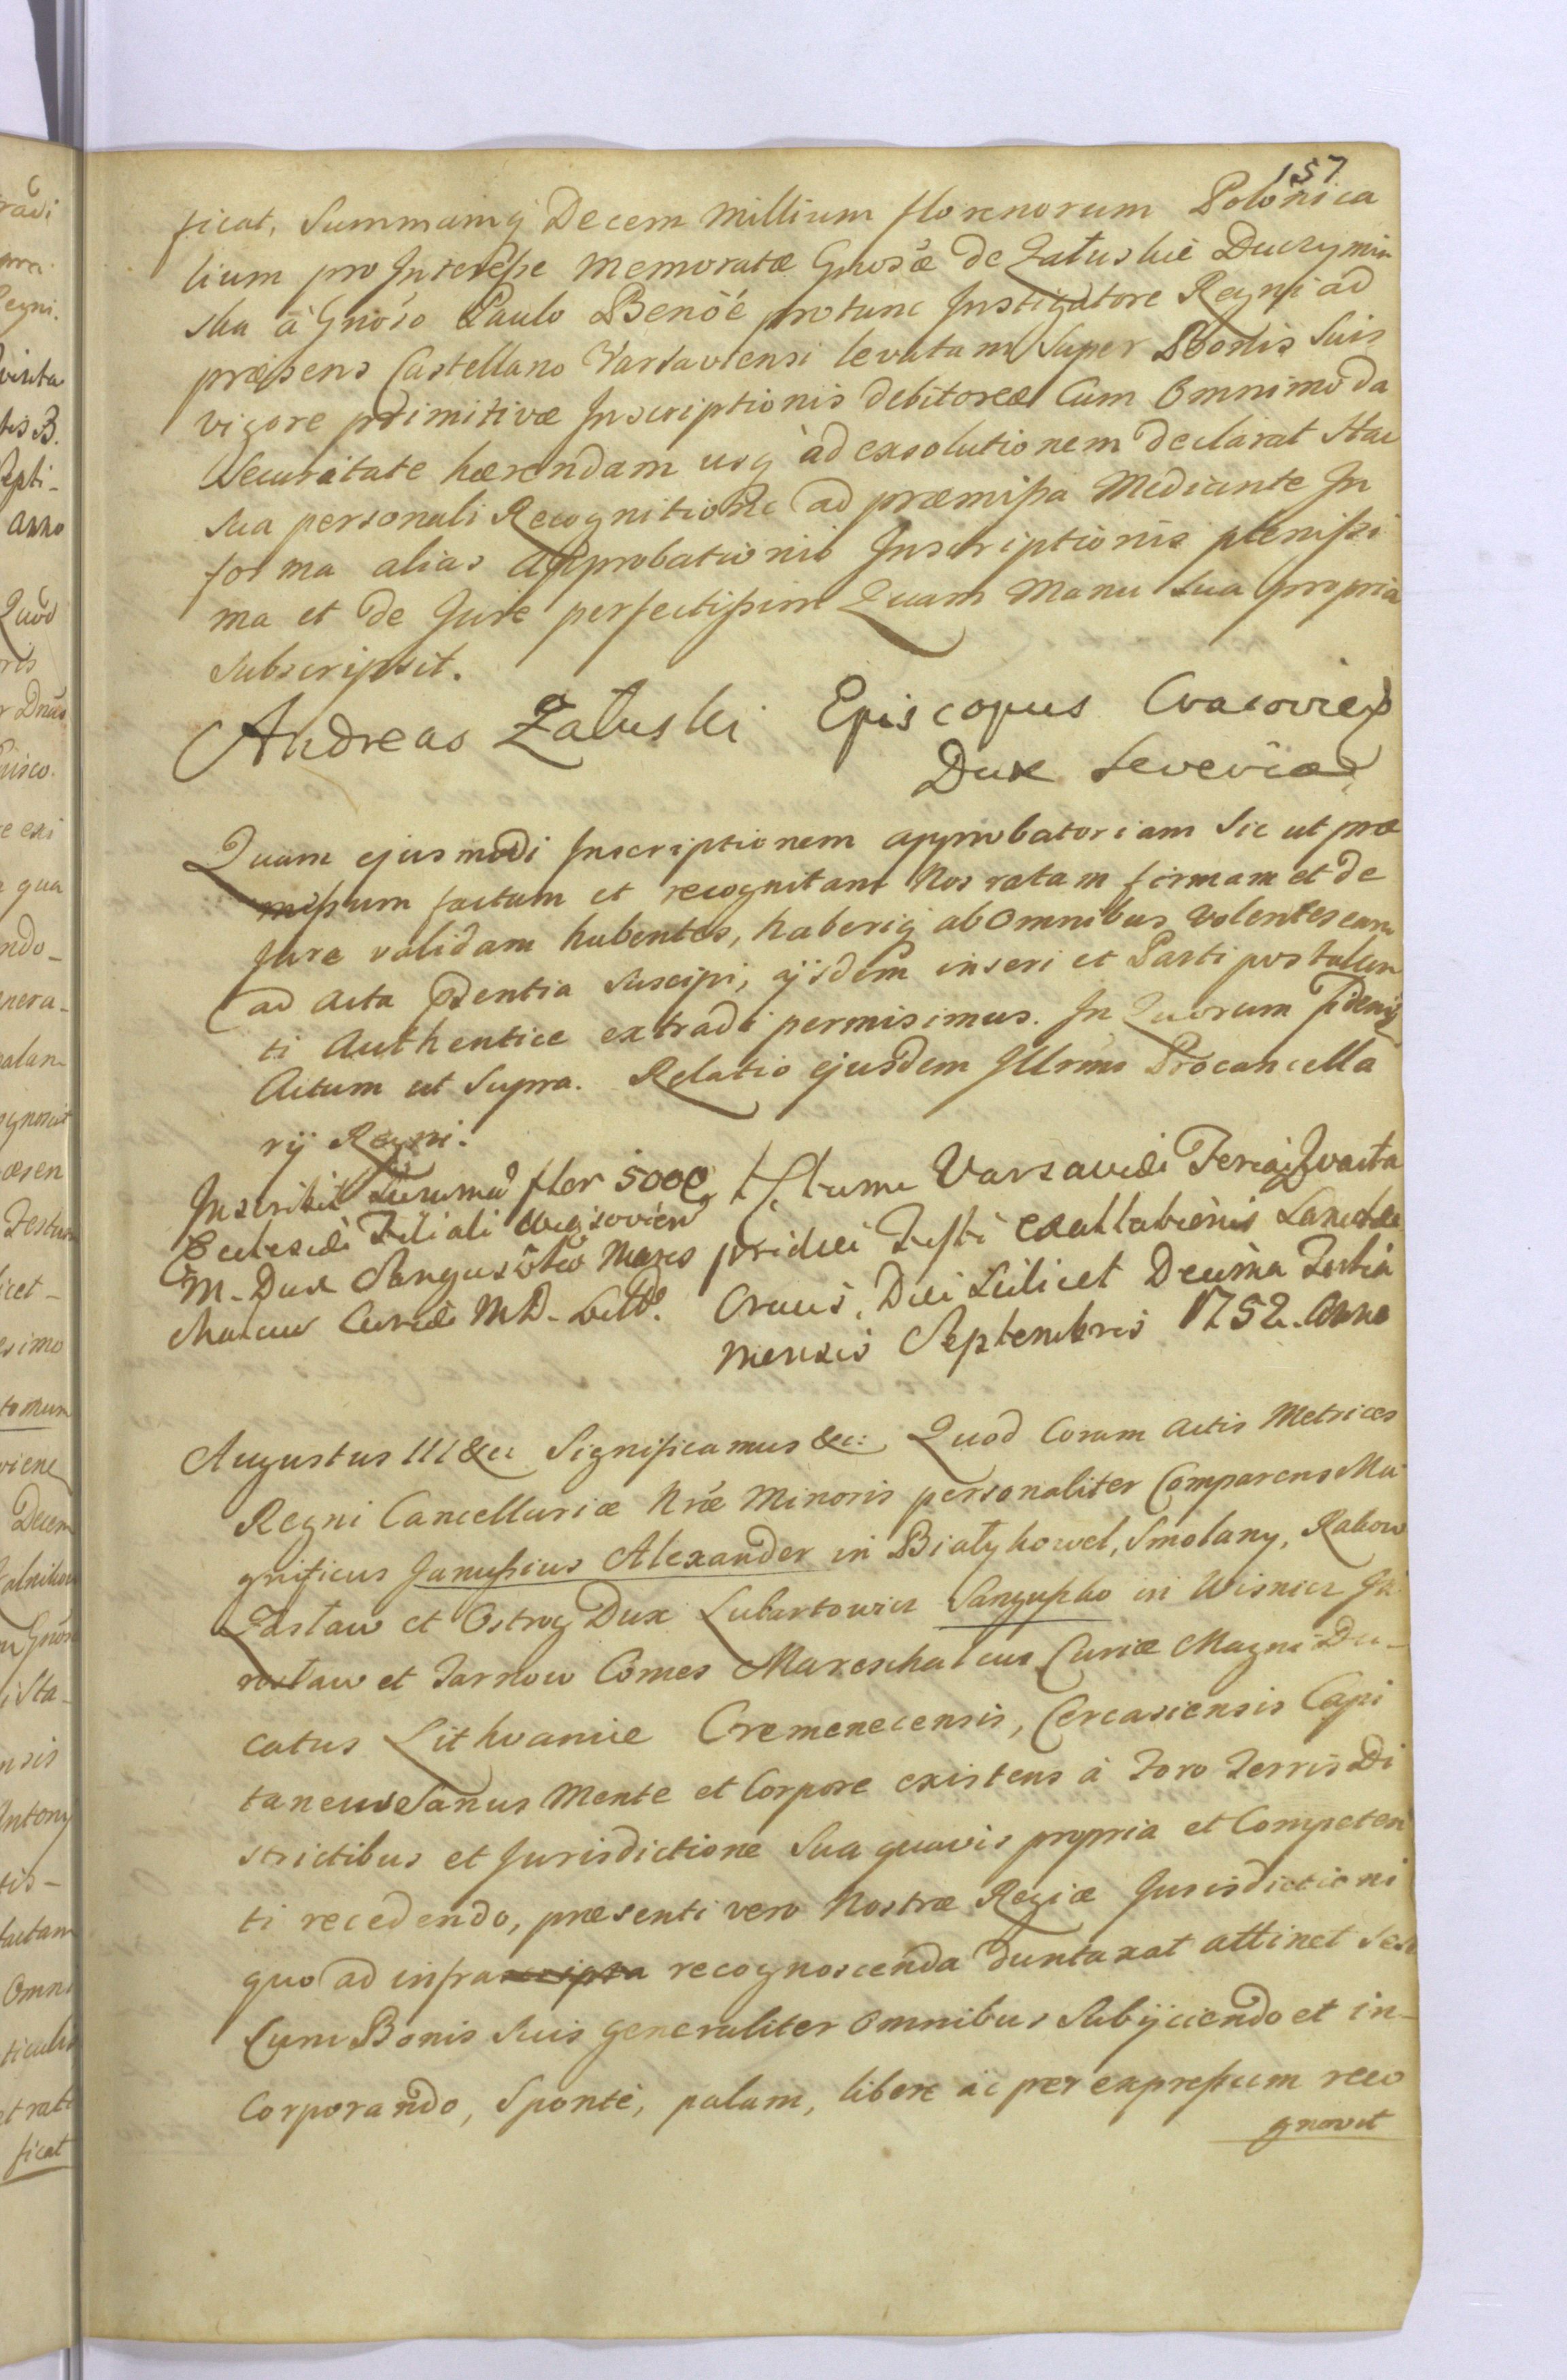 157
ficat, Summamq Decem Millium florenorum Polonica
lium pro Interesse Memoratæ Gnosæ de Załuskie Duczymin
ska à Gnoso Paulo Benoé protunc Instigatore Regni ad
præsens Castellano Varsaviensi levatam Super Bonis Suis
vigore primitivæ Inscriptionis debitoreæ Cum Omnimoda
Securitate hærendam usq ad exsolutionem declarat Hac
Sua personali Recognitione ad præmissa Mediante In
forma alias Approbationis Inscriptionis plenissi
ma et de Jure perfectissim Quam Manu Sua propria
Subscripsit.
Andreas Załuski Episcopus Cracovien
Dux Severiæ
Quam ejusmodi Inscriptionem approbatoriam Sic ut præ
missum factum et recognitam Nos ratam firmam et de
Jure validam habentes, haberiq ab Omnibus Volentes eam
ad Acta pdentia Suscipi, ijsdem inseri et Parti postulan
ti Authentice extradi permisimus. In Quorum Fidem
Actum ut Supra. Relatio ejusdem Illrmi Procancella
rij Regni.
Inscribit Summã flor 5000
Ecclesiæ Filiali
M. Dux Sangusko
Curiæ M.D. Litt.
Actum Varsaviæ Feria Quarta
pridiei Festi Exaltationis Sanctæ
Crucis, Die Scilicet Decima Tertia
Mensis Septembris 1752. Anno
Augustus III &c Significamus &c: Quod Coram Actis Metrices
Regni Cancellariæ Nræ Minoris personaliter Comparens Ma
gnificus Janussius Alexander in Białykowel, Smolany, Rakow
Zasław et Ostrog Dux Lubartowicz Sangussko in Wisnicz Ja
rosław et Tarnow Comes Mareschalcus Curiæ Magni Du-
catus Lithvaniæ Cremenecensis, Cercasiensis Capi
taneus Sanus Mente et Corpore existens à Foro Terris Di
strictibus et Jurisdictione Sua quavis propria et Competen
ti recedendo, præsenti vero Nostræ Regiæ Jurisdictioni
quo ad infrascripta recognoscenda duntaxat attinet Sese
Cum Bonis Suis generaliter Omnibus Subijciendo et in-
Corporando, Sponte, palam, libere ac per expressum reco
gnovit